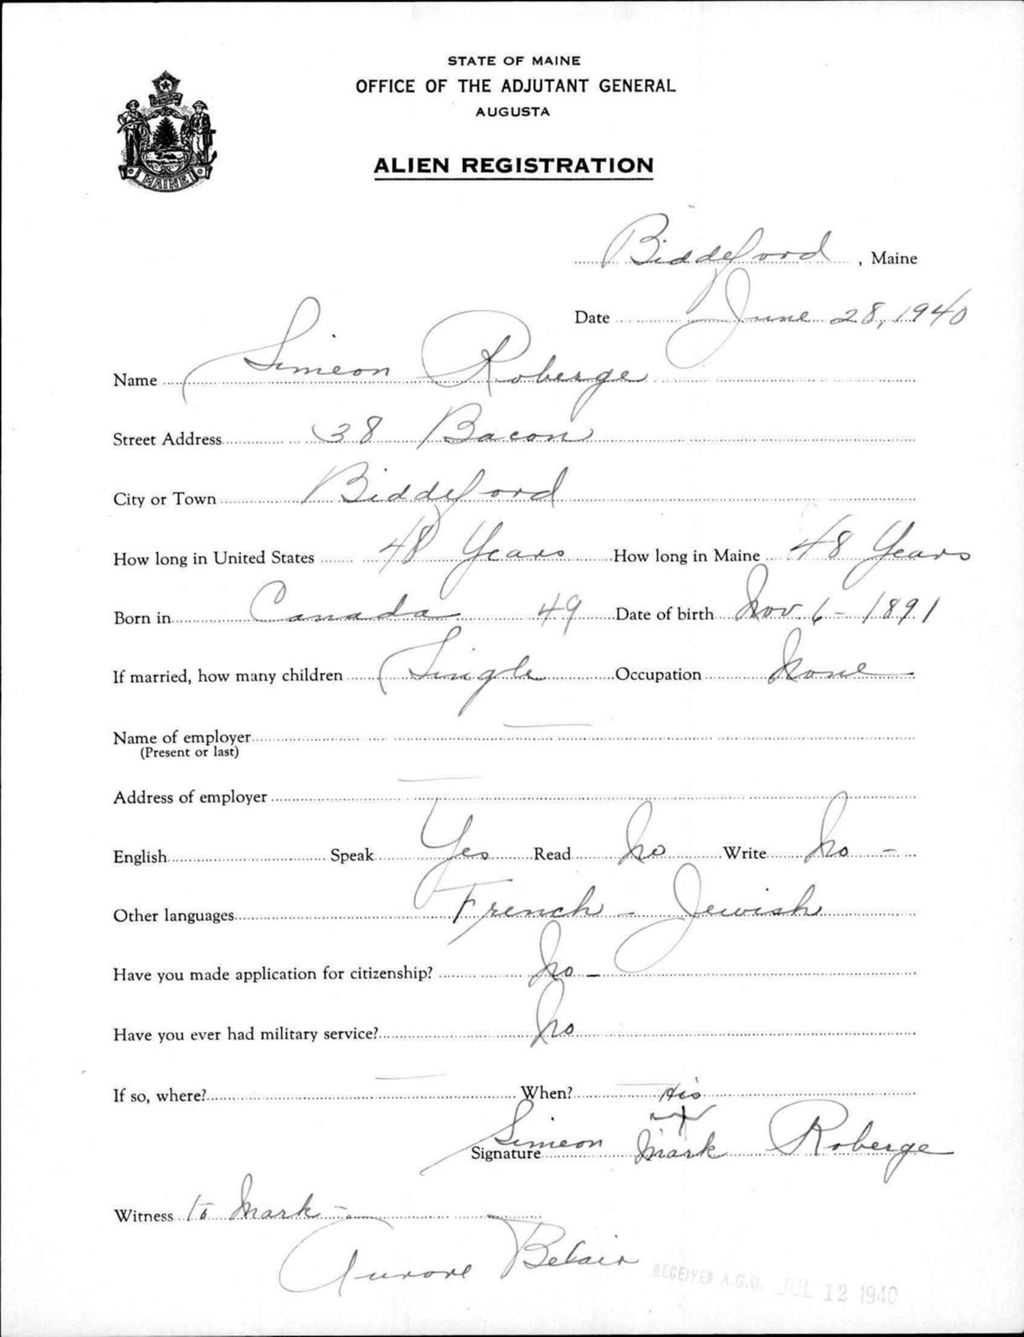 STATE OF MAINE
OFFICE OF THE ADJUTANT GENERAL
AUGUSTA
ALIEN REGISTRATION
MAINE
Biddeford, Maine
Date June 28, 1940
Name Simeon Roberge
Street Address 38 Bacon
City or Town Biddeford
How long in United States 48 Years How long in Maine 48 Years
Born in Canada 49 Date of birth Nov. 6 - 1891
If married, how many children Single Occupation None
Name of employer —
(Present or last)
Address of employer —
English Speak Yes Read No Write No -
Other languages French - Jewish
Have you made application for citizenship? No -
Have you ever had military service? No
If so, where? — When? — His
Signature Simeon X Mark Roberge
Witness to Mark -
Aurore Belair
RECEIVED A.G.O. JUL 12 1940